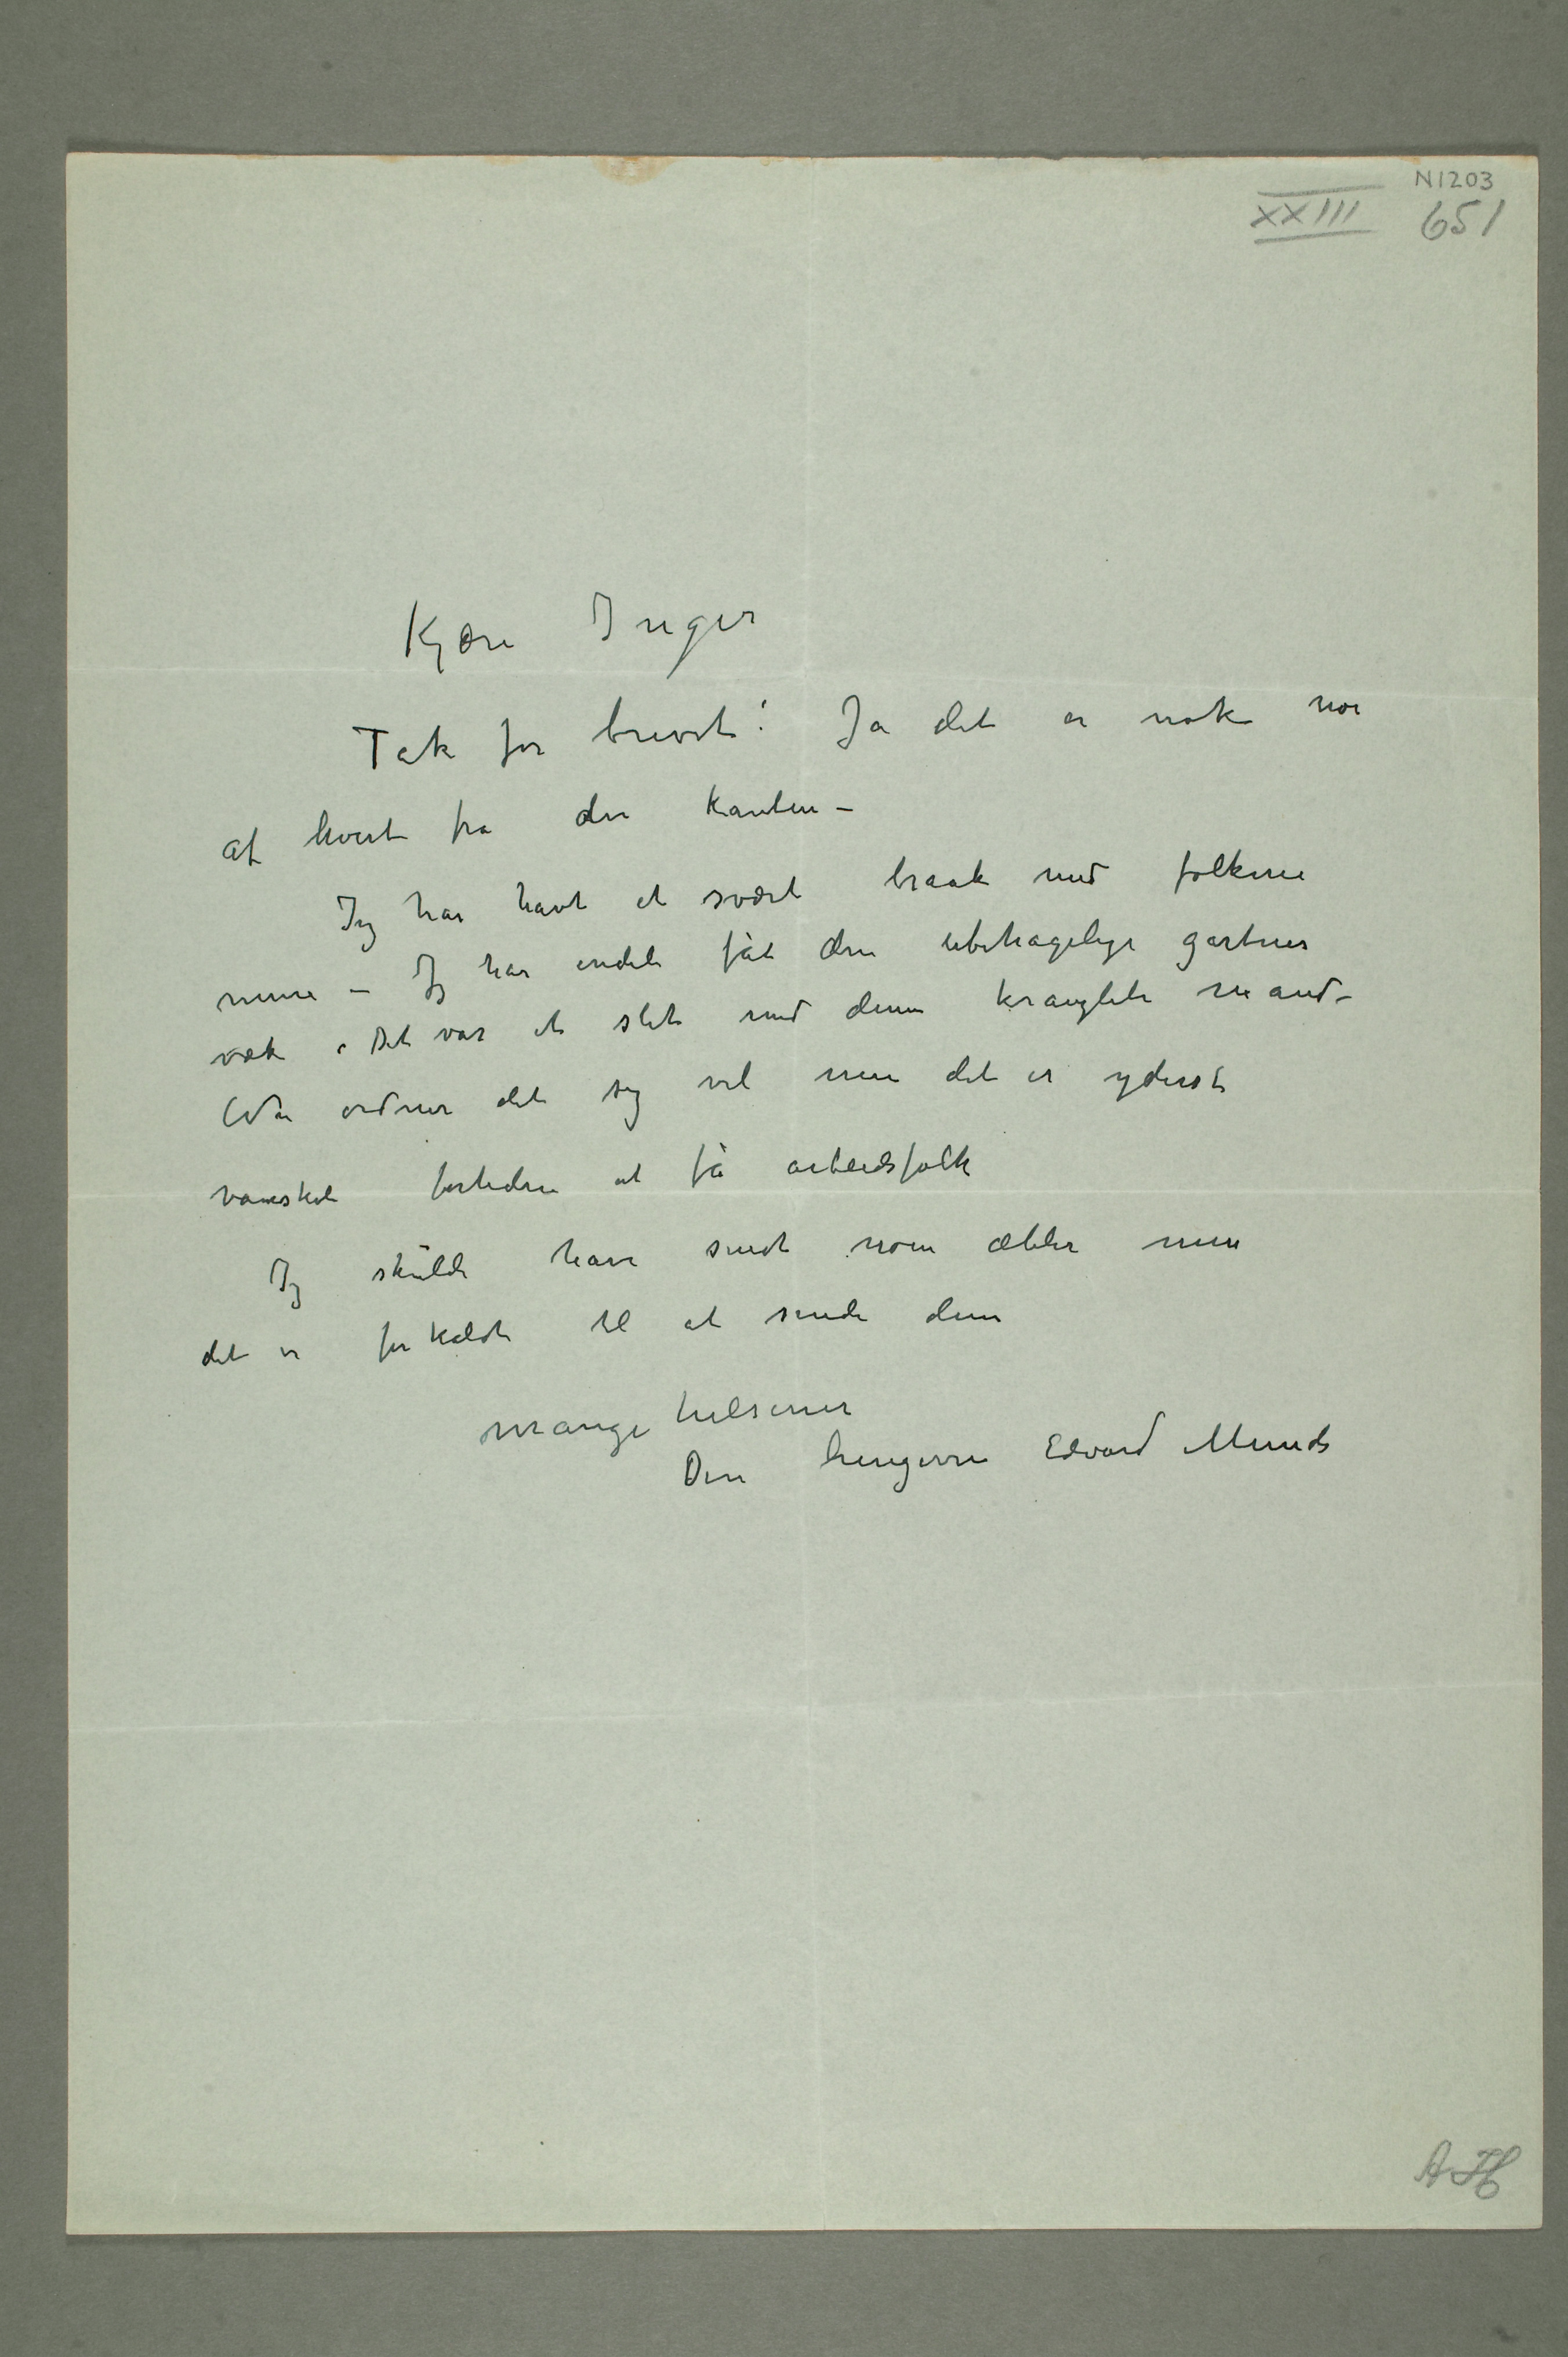 N1203
XXIII 651
Kjære Inger
Tak for brevet! Ja det er nok noe
af hvert fra den kanten –
Jeg har havt et svært braak med folkene
mine – Jeg har endeli fåt den ubehagelige gartner
væk . Det var et slit med denne kranglete mand –
Nå ordner det sig vel men det er yderst
vanskeli fortiden at få arbeidsfolk
Jeg skulde have sendt noen æbler men
det er for koldt til at sende dem
mange hilsener
Din hengivne Edvard Munch
AH